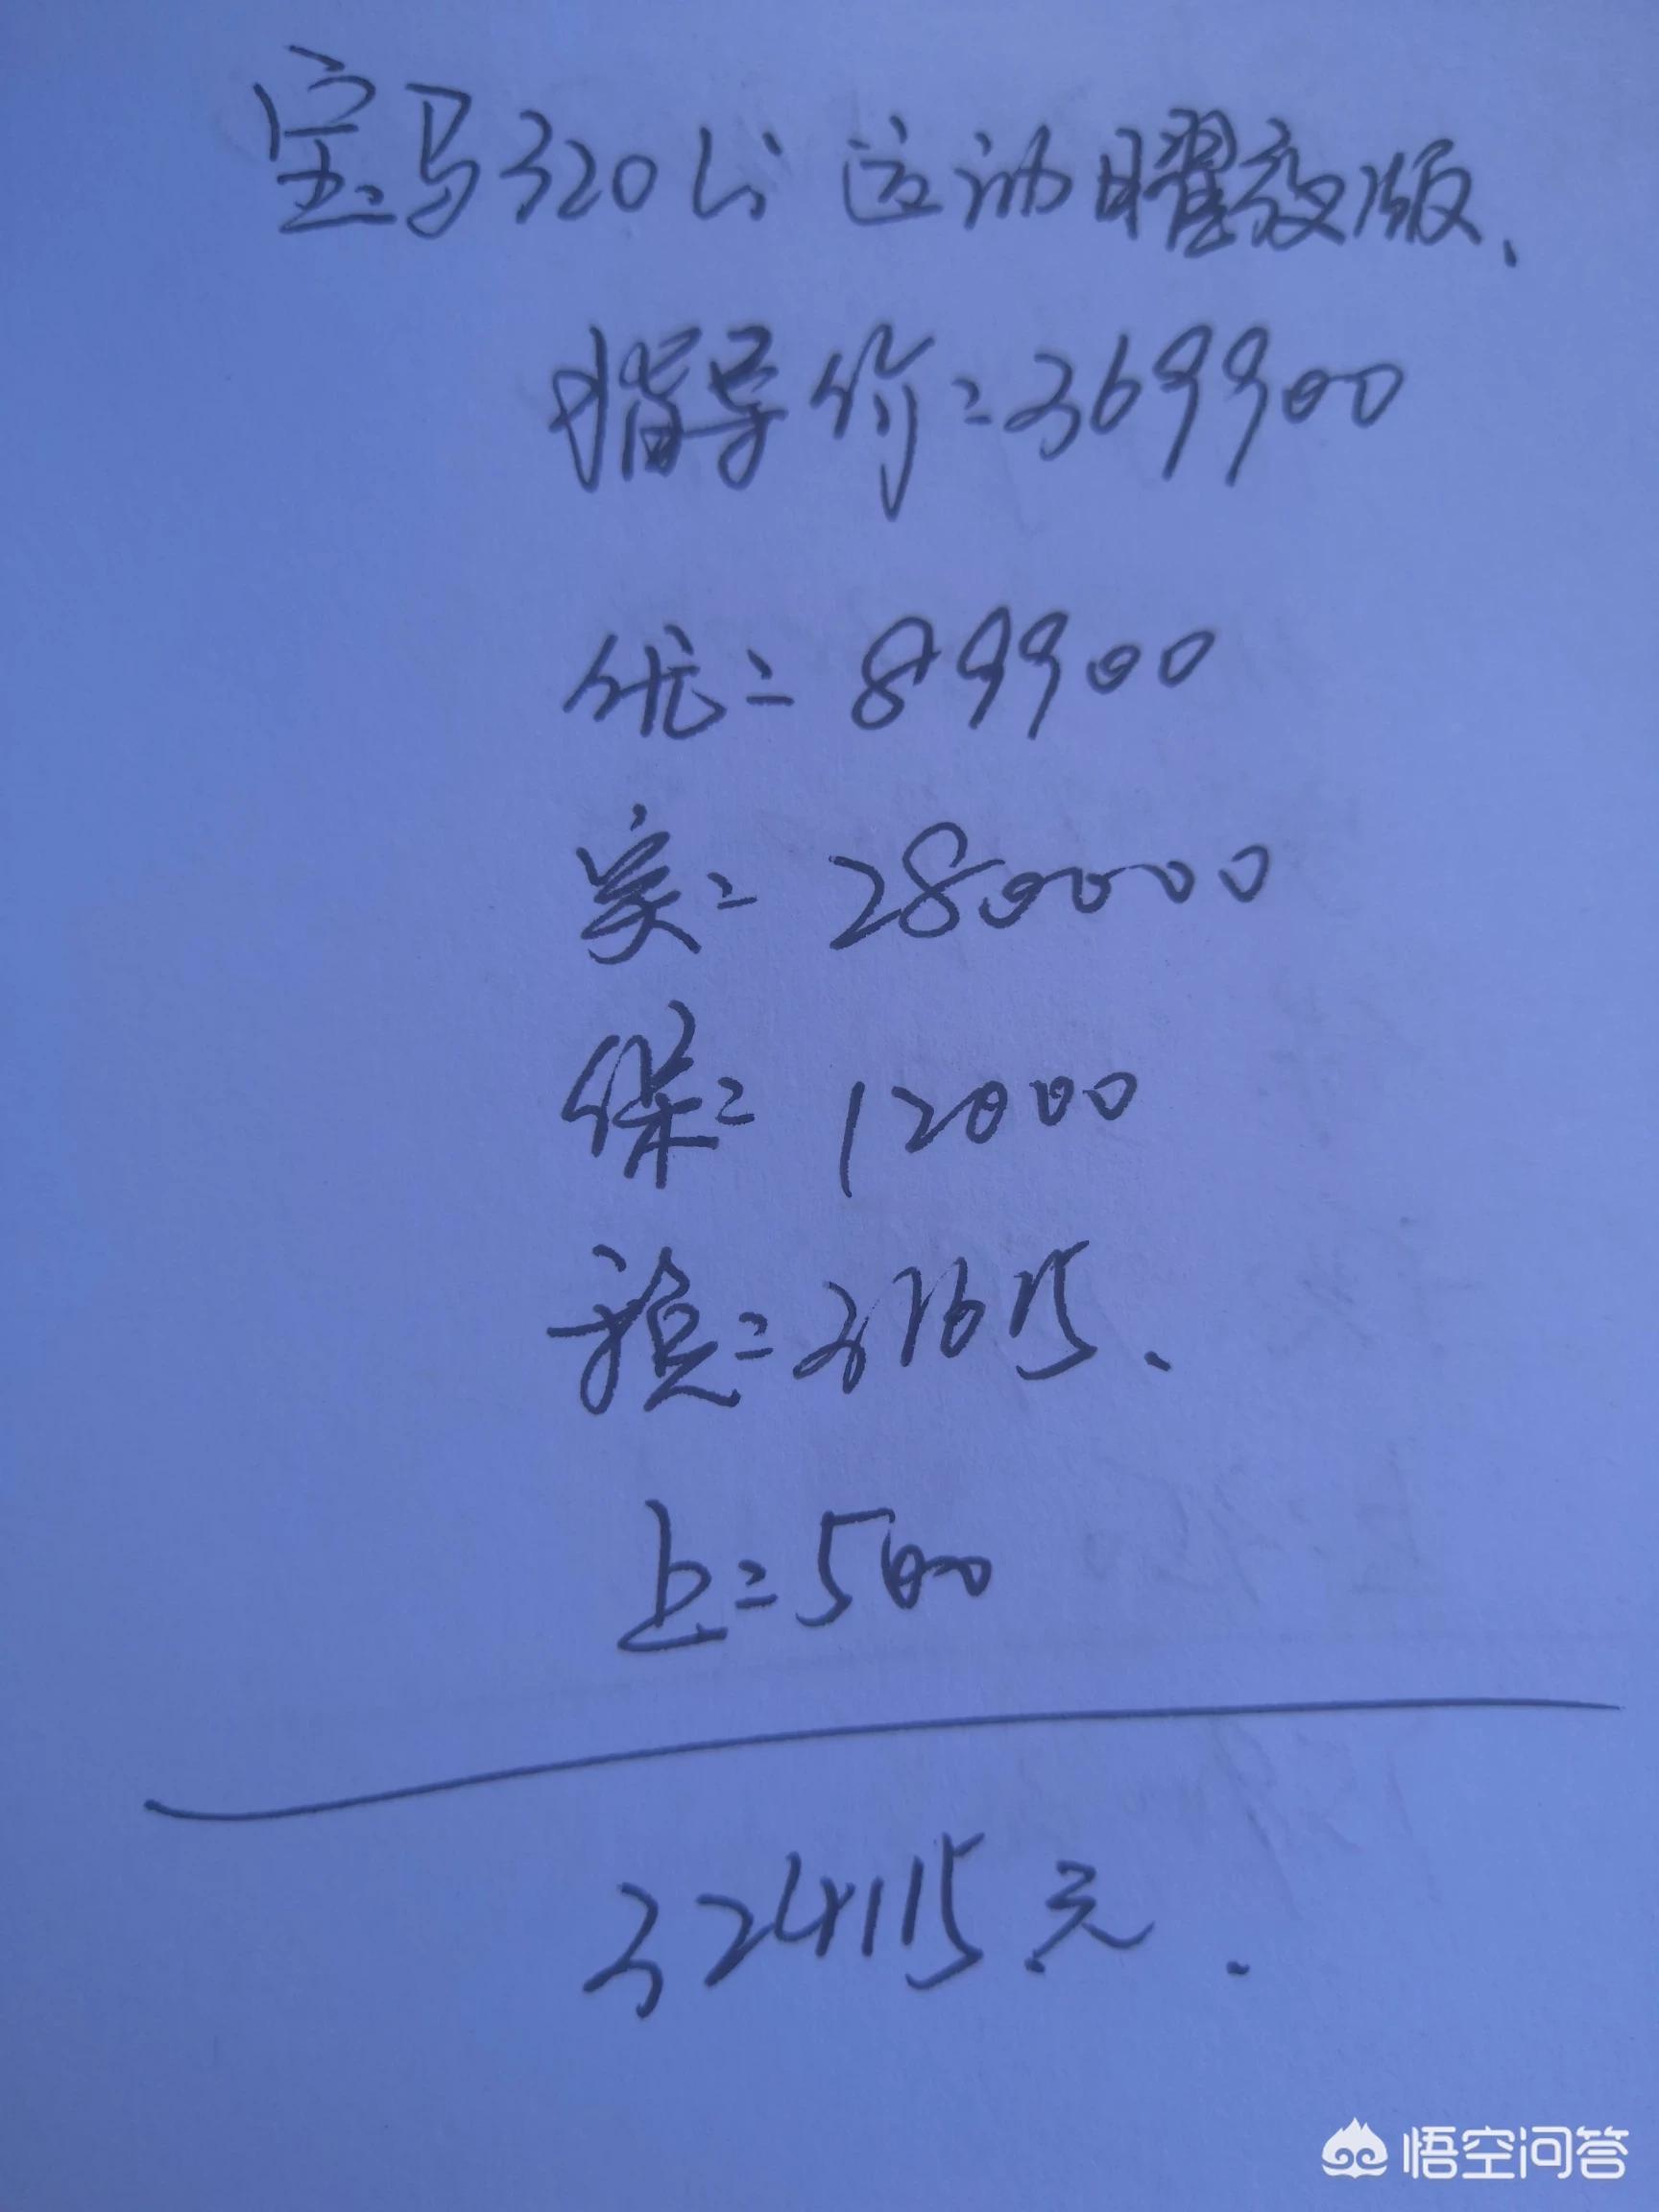 宝马320Li 运动曜夜版、
指导价=369900
优=89900
实=280000
保=12000
税=31615.
上=500
324115.元.
悟空问答